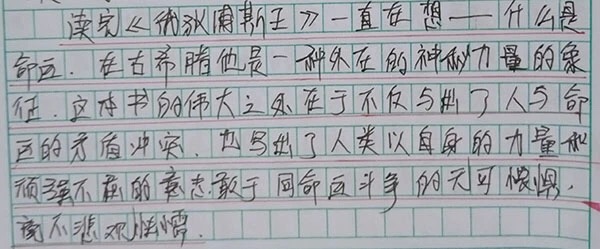 读完《俄狄浦斯王》一直在想——什么是
命运.在古希腊他是一种外在的神秘力量的象
征.这本书的伟大之处在于不仅写出了人与命
运的矛盾冲突.也写出了人类以自身的力量和
顽强不屈的意志敢于同命运斗争的无可畏惧.
竟不悲观怯懦.